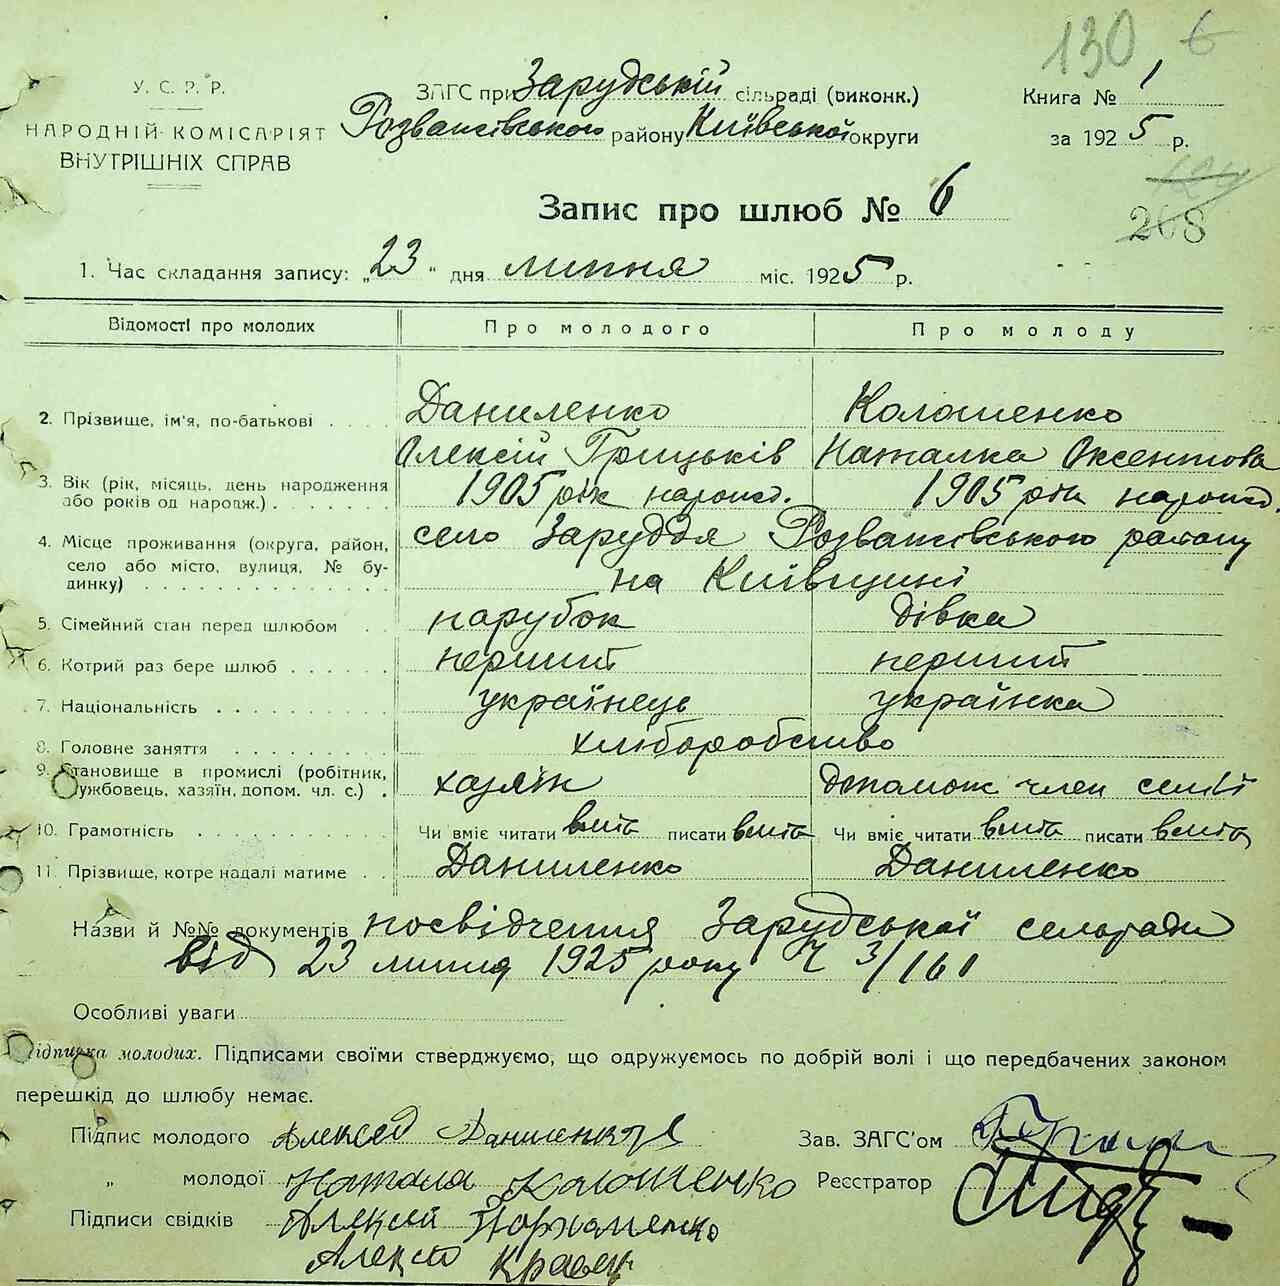 130 6
У. С. Р. Р.
НАРОДНІЙ КОМІСАРІЯТ
ВНУТРІШНІХ СПРАВ
ЗАГС при Зарудській сільраді (виконк.)
Розважівського району Київської округи
Книга № 1
за 1925 р.
208
Запис про шлюб № 6
1. Час складання запису: „23" дня липня міс. 1925 р.
Відомості про молодих Про молодого Про молоду
2. Прізвище, ім'я, по-батькові Даниленко Колошенко
Олексій Грицьків Наталка Оксентова
3. Вік (рік, місяць, день народження або років од народж.) 1905 рік народж. 1905 рік народж.
4. Місце проживання (округа, район, село або місто, вулиця, № будинку) село Заруддя Розважівського району
на Київщині
5. Сімейний стан перед шлюбом парубок дівка
6. Котрий раз бере шлюб перший перший
7. Національність українець українка
8. Головне заняття хліборобство
9. Становище в промислі (робітник, службовець, хазяїн, допом. чл. с.) хазяїн допомож член семї
10. Грамотність Чи вміє читати вміє писати вміє Чи вміє читати вміє писати вміє
11. Прізвище, котре надалі матиме Даниленко Даниленко
Назви й №№ документів посвідчення Зарудської сельради
від 23 липня 1925 року Ч 3/160
Особливі уваги
Підписка молодих. Підписами своїми стверджуємо, що одружуємось по добрій волі і що передбачених законом
перешкід до шлюбу немає.
Підпис молодого Алексей Даниленко Зав. ЗАГС'ом
„ молодої Натала Колошенко Реєстратор
Підписи свідків Алексей Пархоменко
Алексей Кравец